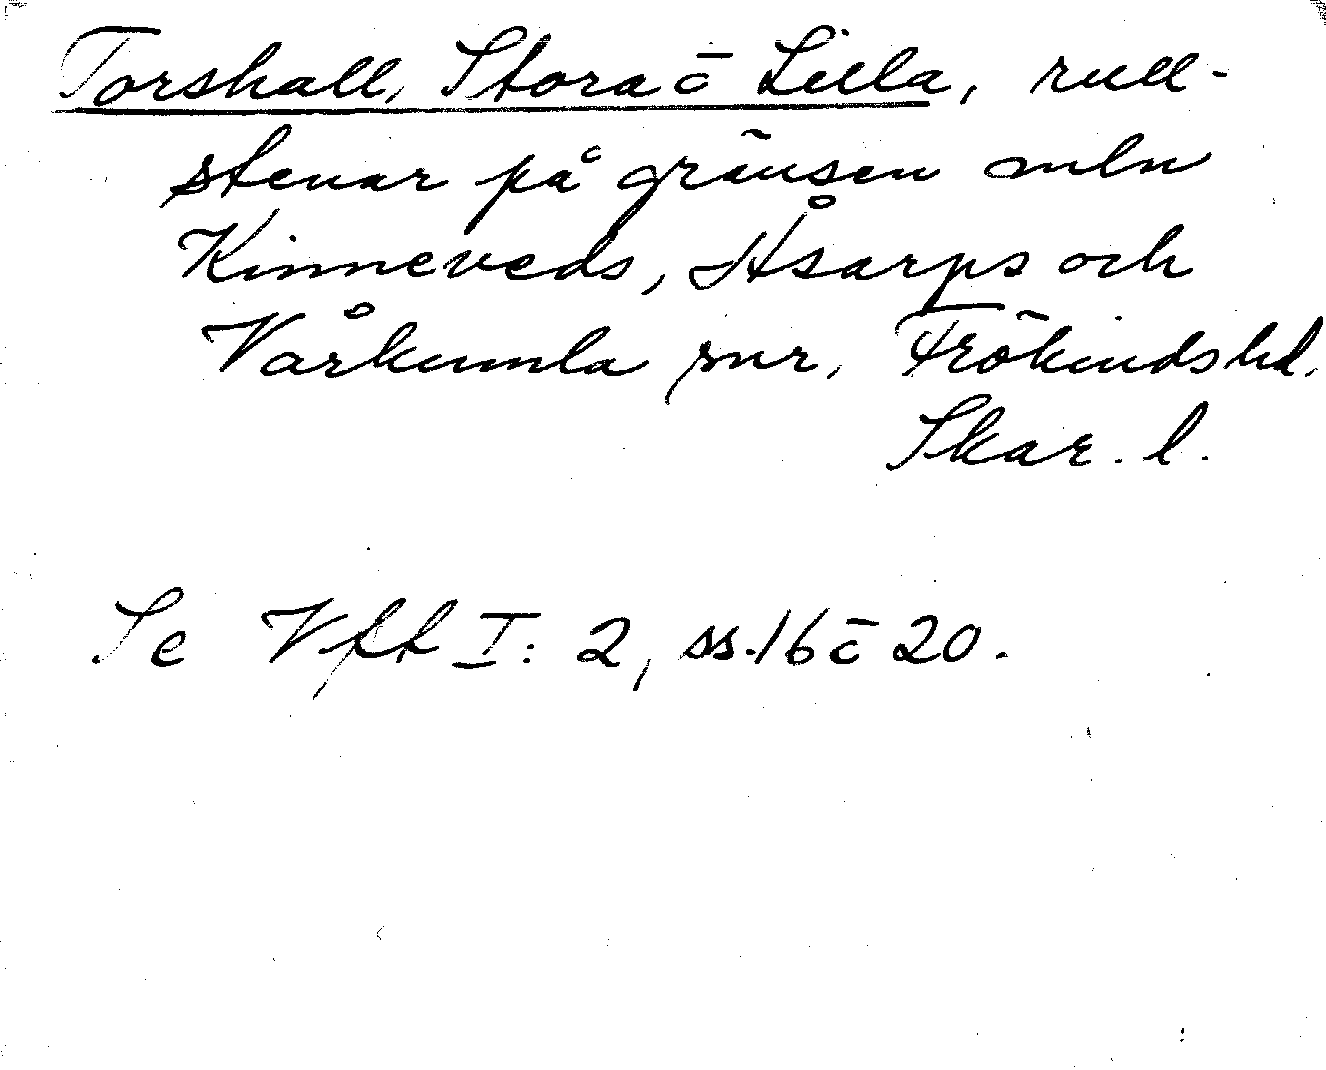 Torshall, Stora o̅ Lilla, rull-
stenar på gränsen mln
Kinneveds, Åsarps och
Vårkumla snr, Frökinds hd.
Skar. l.
Se Vfft I: 2, ss. 16 o̅ 20.